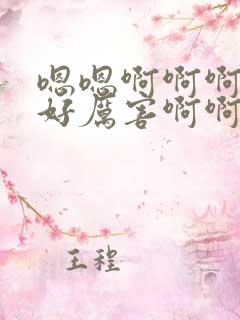 嗯嗯啊啊啊
好厲害啊啊
王程